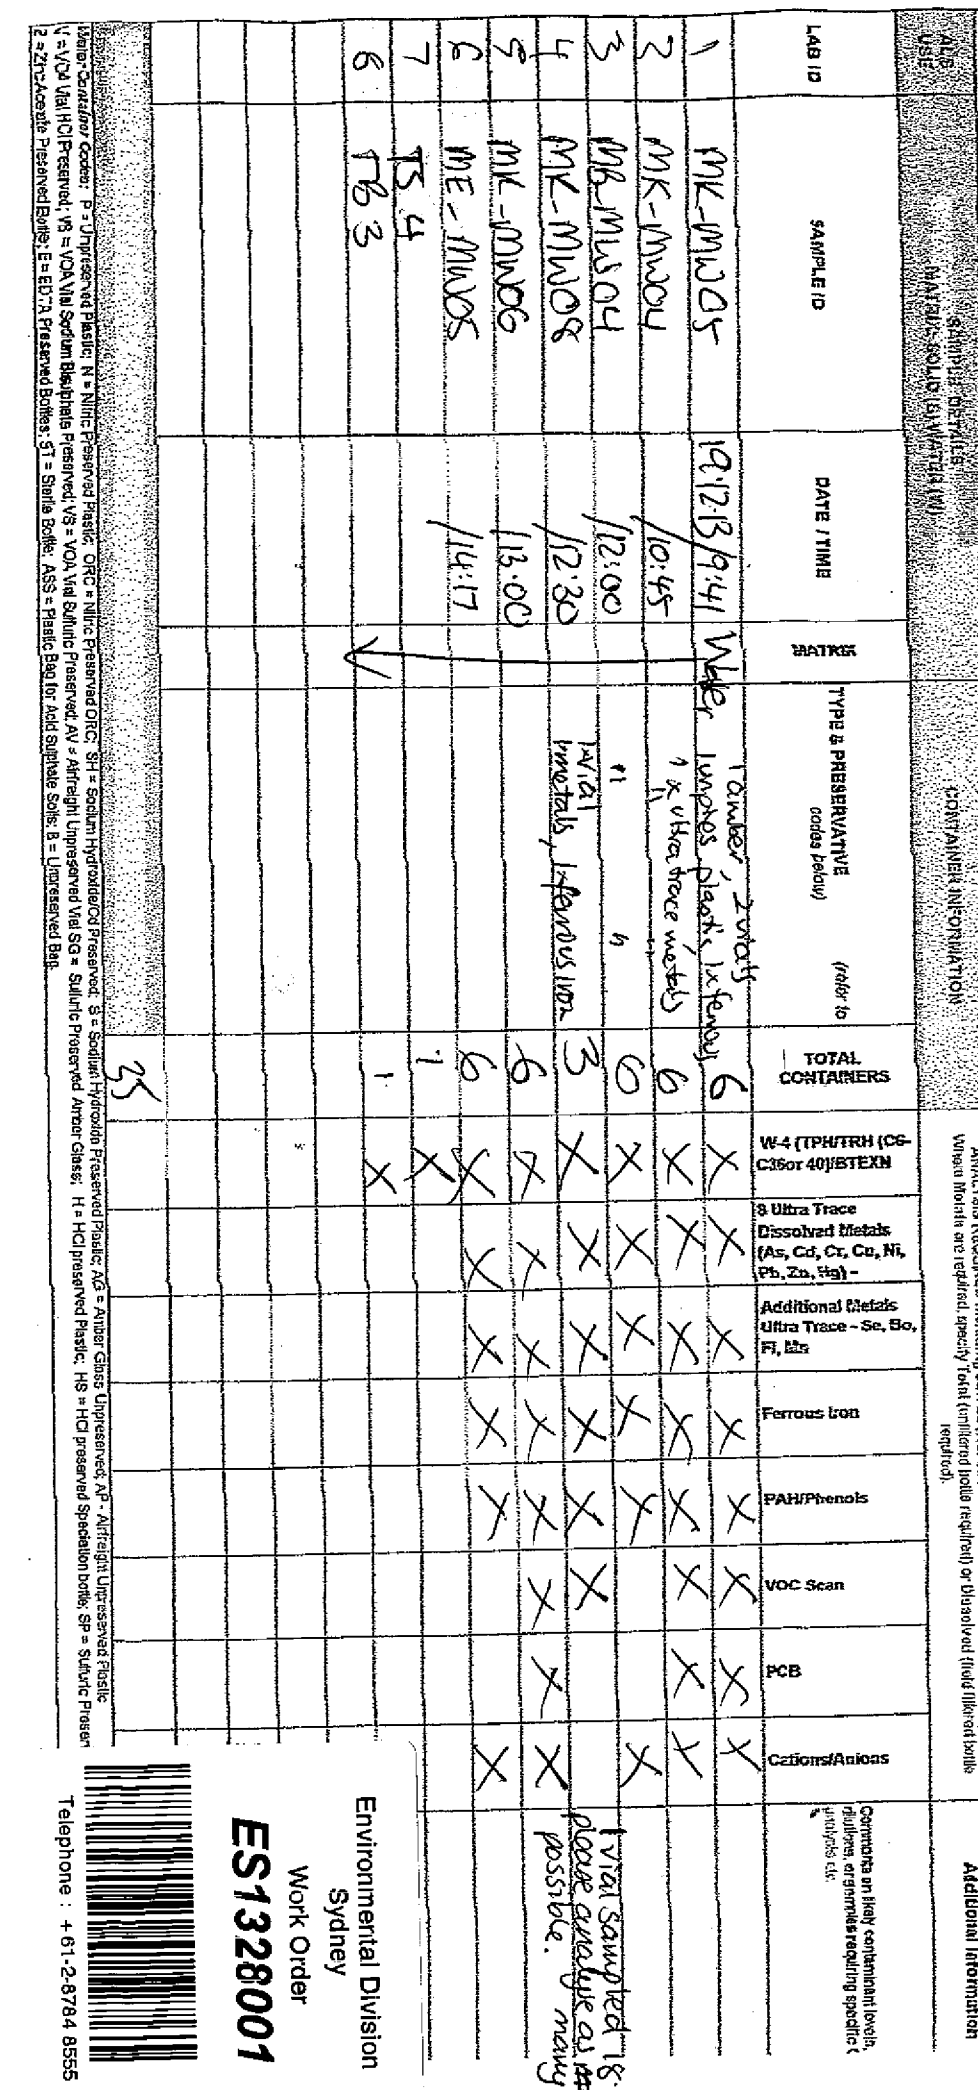 ALS USE
SAMPLE DETAILS
MATRIX: SOLID (S) WATER (W)
CONTAINER INFORMATION
Where Metals are required, specify Total (unfiltered bottle required) or Dissolved (field filtered bottle required).
Additional Information
LAB ID
SAMPLE ID
DATE / TIME
MATRIX
TYPE & PRESERVATIVE (refer to codes below)
TOTAL CONTAINERS
W-4 (TPH/TRH (C6-C36or 40)/BTEXN
8 Ultra Trace Dissolved Metals (As, Cd, Cr, Cu, Ni, Pb, Zn, Hg) -
Additional Metals Ultra Trace - Se, Bo, Fl, Mn
Ferrous Iron
PAH/Phenols
VOC Scan
PCB
Cations/Anions
Comments on likely contaminant levels, dilutions, or samples requiring specific QC analysis etc.
1 MK-MW05 19.12.13/9:41 Water 1 amber, 2 vials 6 X X X X X X X X
2 MK-MW04 /10:45 1 x ultra trace metals 6 X X X X X X X X
3 MB-MW04 /12:00 " " 6 X X X X X X
4 MK-MW08 /12:30 1xvial metals, 1xferrous iron 3 X X X X X X 1 vial sampled
please analyse as many possible.
5 MK-MW06 /13:00 6 X X X X X X X X
6 ME-MW05 /14:17 6 X X X X X X
7 TS4 1 X
8 TB3 1 X
35
Water Container Codes: P = Unpreserved Plastic; N = Nitric Preserved Plastic; ORC = Nitric Preserved ORC; SH = Sodium Hydroxide/Cd Preserved; S = Sodium Hydroxide Preserved Plastic; AG = Amber Glass Unpreserved; AP - Airfreight Unpreserved Plastic
V = VOA Vial HCl Preserved; VB = VOA Vial Sodium Bisulphate Preserved; VS = VOA Vial Sulfuric Preserved; AV = Airfreight Unpreserved Vial SG = Sulfuric Preserved Amber Glass; H = HCl preserved Plastic; HS = HCl preserved Speciation bottle; SP = Sulfuric Preser
Z = Zinc Acetate Preserved Bottle; E = EDTA Preserved Bottles; ST = Sterile Bottle; ASS = Plastic Bag for Acid Sulphate Soils; B = Unpreserved Bag.
Environmental Division
Sydney
Work Order
ES1328001
Telephone : +61-2-8784 8555